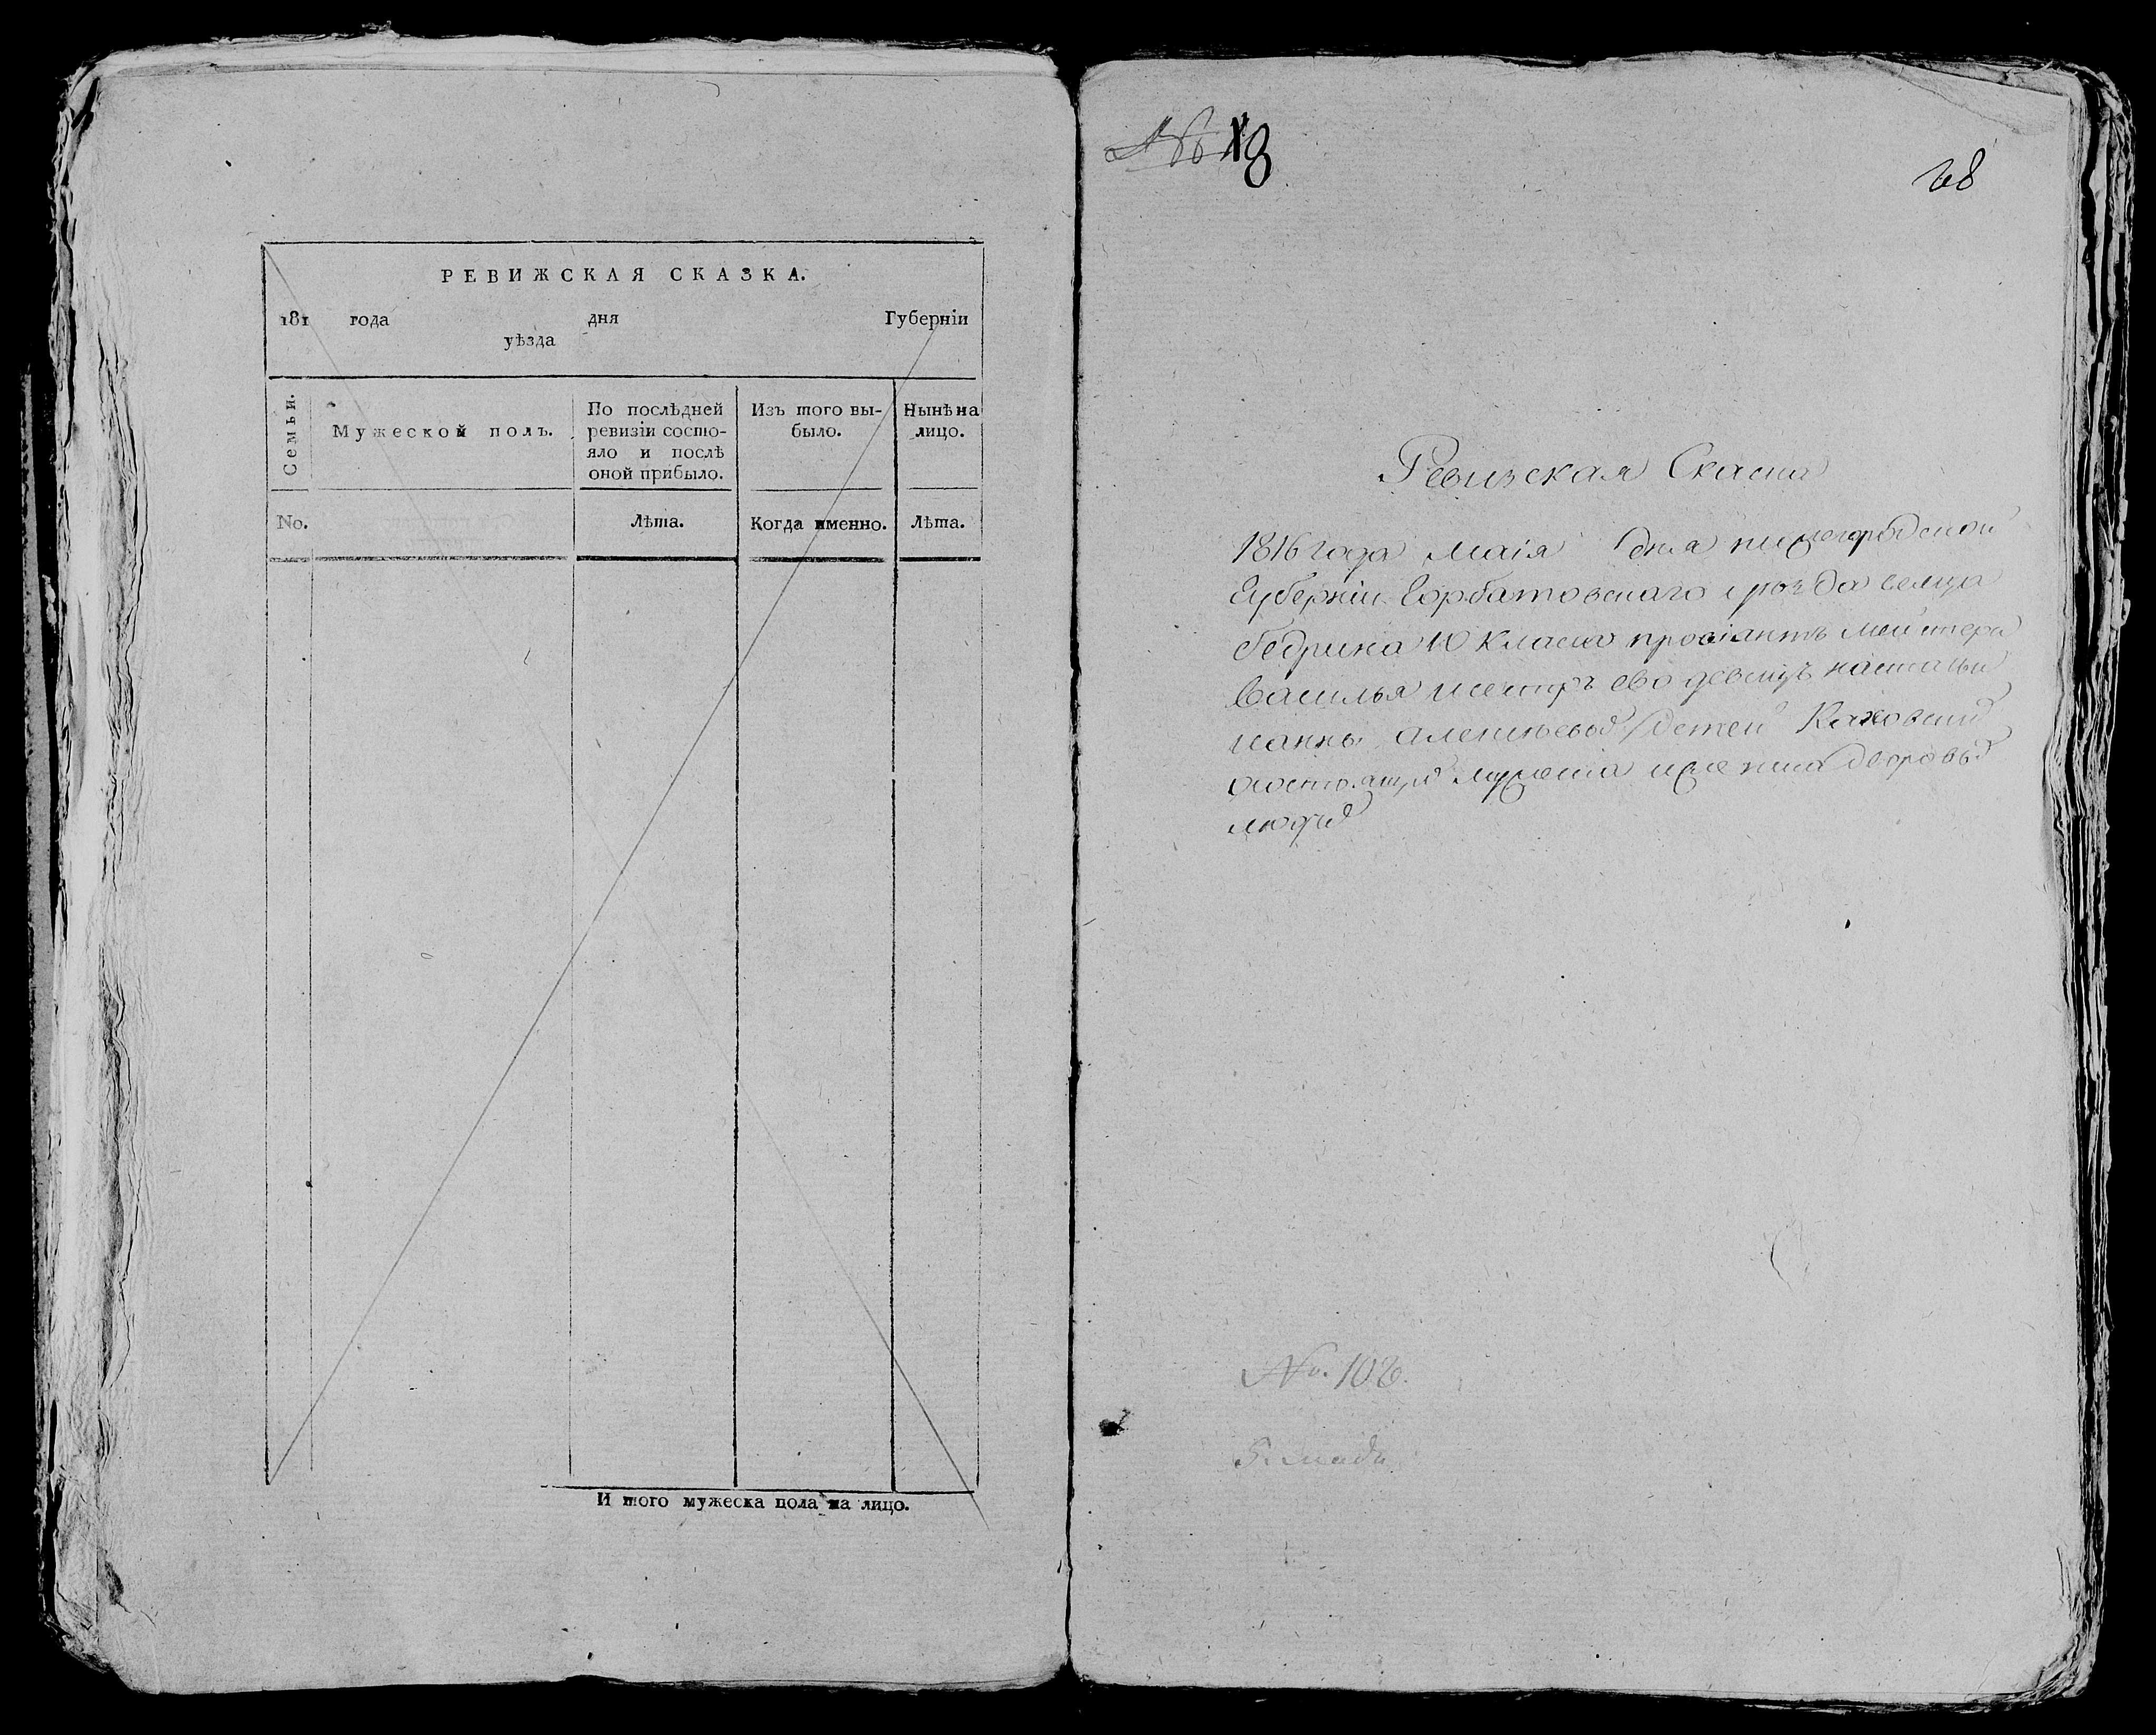 РЕВИЖСКАЯ СКАЗКА.
181 года дня Губерніи
уѣзда
Семьи.
Мужеской полъ.
По послѣдней
ревизіи состо-
яло и послѣ
оной прибыло.
Изъ того вы-
было.
Нынѣ на
лицо.
No.
Лѣта.
Когда именно.
Лѣта.
И того мужеска пола на лицо.
18
Ревизская Скаска
1816 года маія дня нижегородской
губерніи Горбатовскаго уѣзда селца
10 класса провіантъ мейстера
Василья исестръ ево девицъ настасьи
ианны алексѣевыхъ детей
состоящихъ мужеска иженска дворовыхъ
людѣхъ
No. 108.